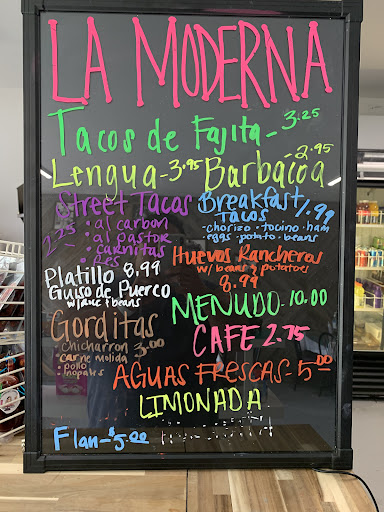 LA MODERNA
Tacos de Fajita - 3.25
Lengua - 3.95 Barbacoa - 2.95
Street Tacos
• al carbon
• al pastor
• carnitas
• Res
Breakfast
Tacos 1.99
• chorizo • tocino • ham
eggs • potato • beans
Platillo 8.99
Guiso de Puerco
Huevos Rancheros
w/ beans & potatoes
8.99
MENUDO - 10.00
Gorditas
chicharron 3.00
• carne molida
• pollo
• nopales
CAFE 2.75
AGUAS FRESCAS - 5.00
LIMONADA
Flan - $5.00